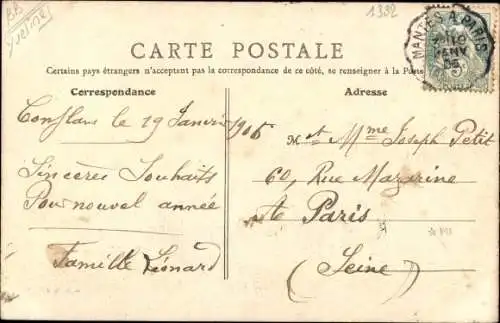 BB
Yvelines
1382
MANTES A PARIS
CARTE POSTALE
Certains pays étrangers n'acceptent pas la correspondance de ce côté, se renseigner à la Poste
Correspondance
Adresse
Conflans le 19 Janvier 1906
Sincères Souhaits
Pour nouvel année
Famille Léonard
M et Mme Joseph Petit
60, Rue Mazarine
Paris
(Seine)